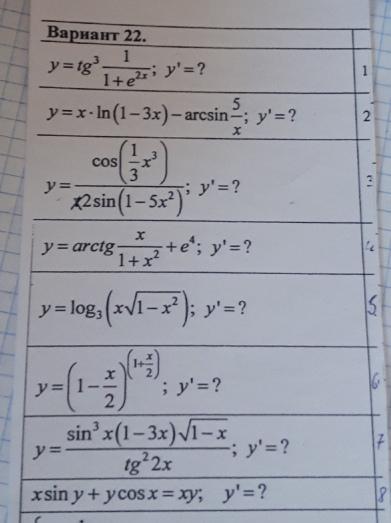 Вариант 22.
y = tg³ 1/(1+e^(2x)); y' = ? 1
y = x·ln(1−3x)−arcsin 5/x; y' = ? 2
y = cos(1/3 x³)/(x2sin(1−5x²)); y' = ? 3
y = arctg x/(1+x²) + e⁴; y' = ? 4
y = log₃(x√(1−x²)); y' = ? 5
y = (1−x/2)^(1+x/2); y' = ? 6
y = sin³x(1−3x)√(1−x)/(tg²2x); y' = ? 7
x sin y + y cos x = xy; y' = ? 8